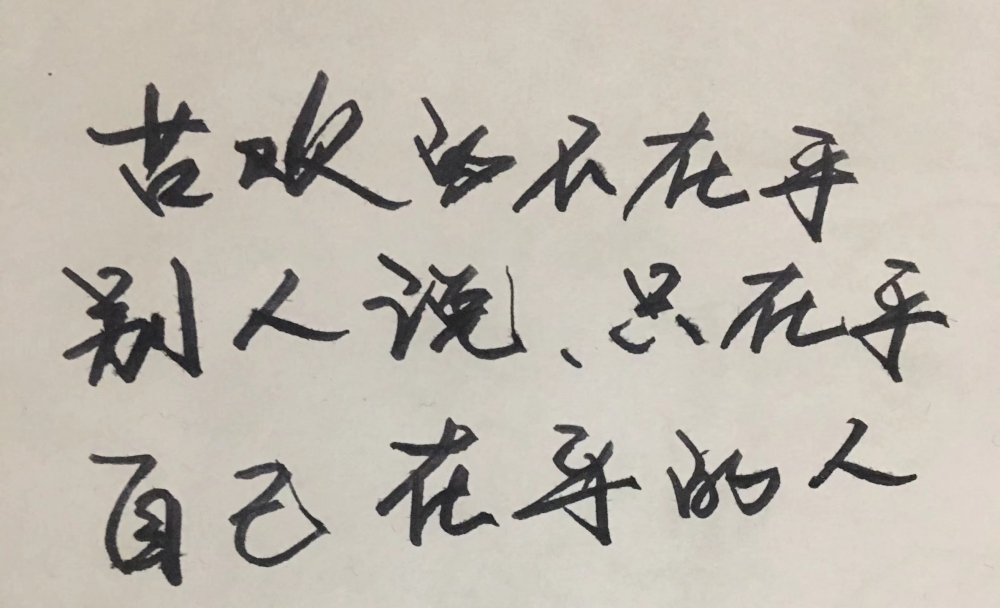 苦欢的不在乎
别人说、只在乎
自己在乎的人